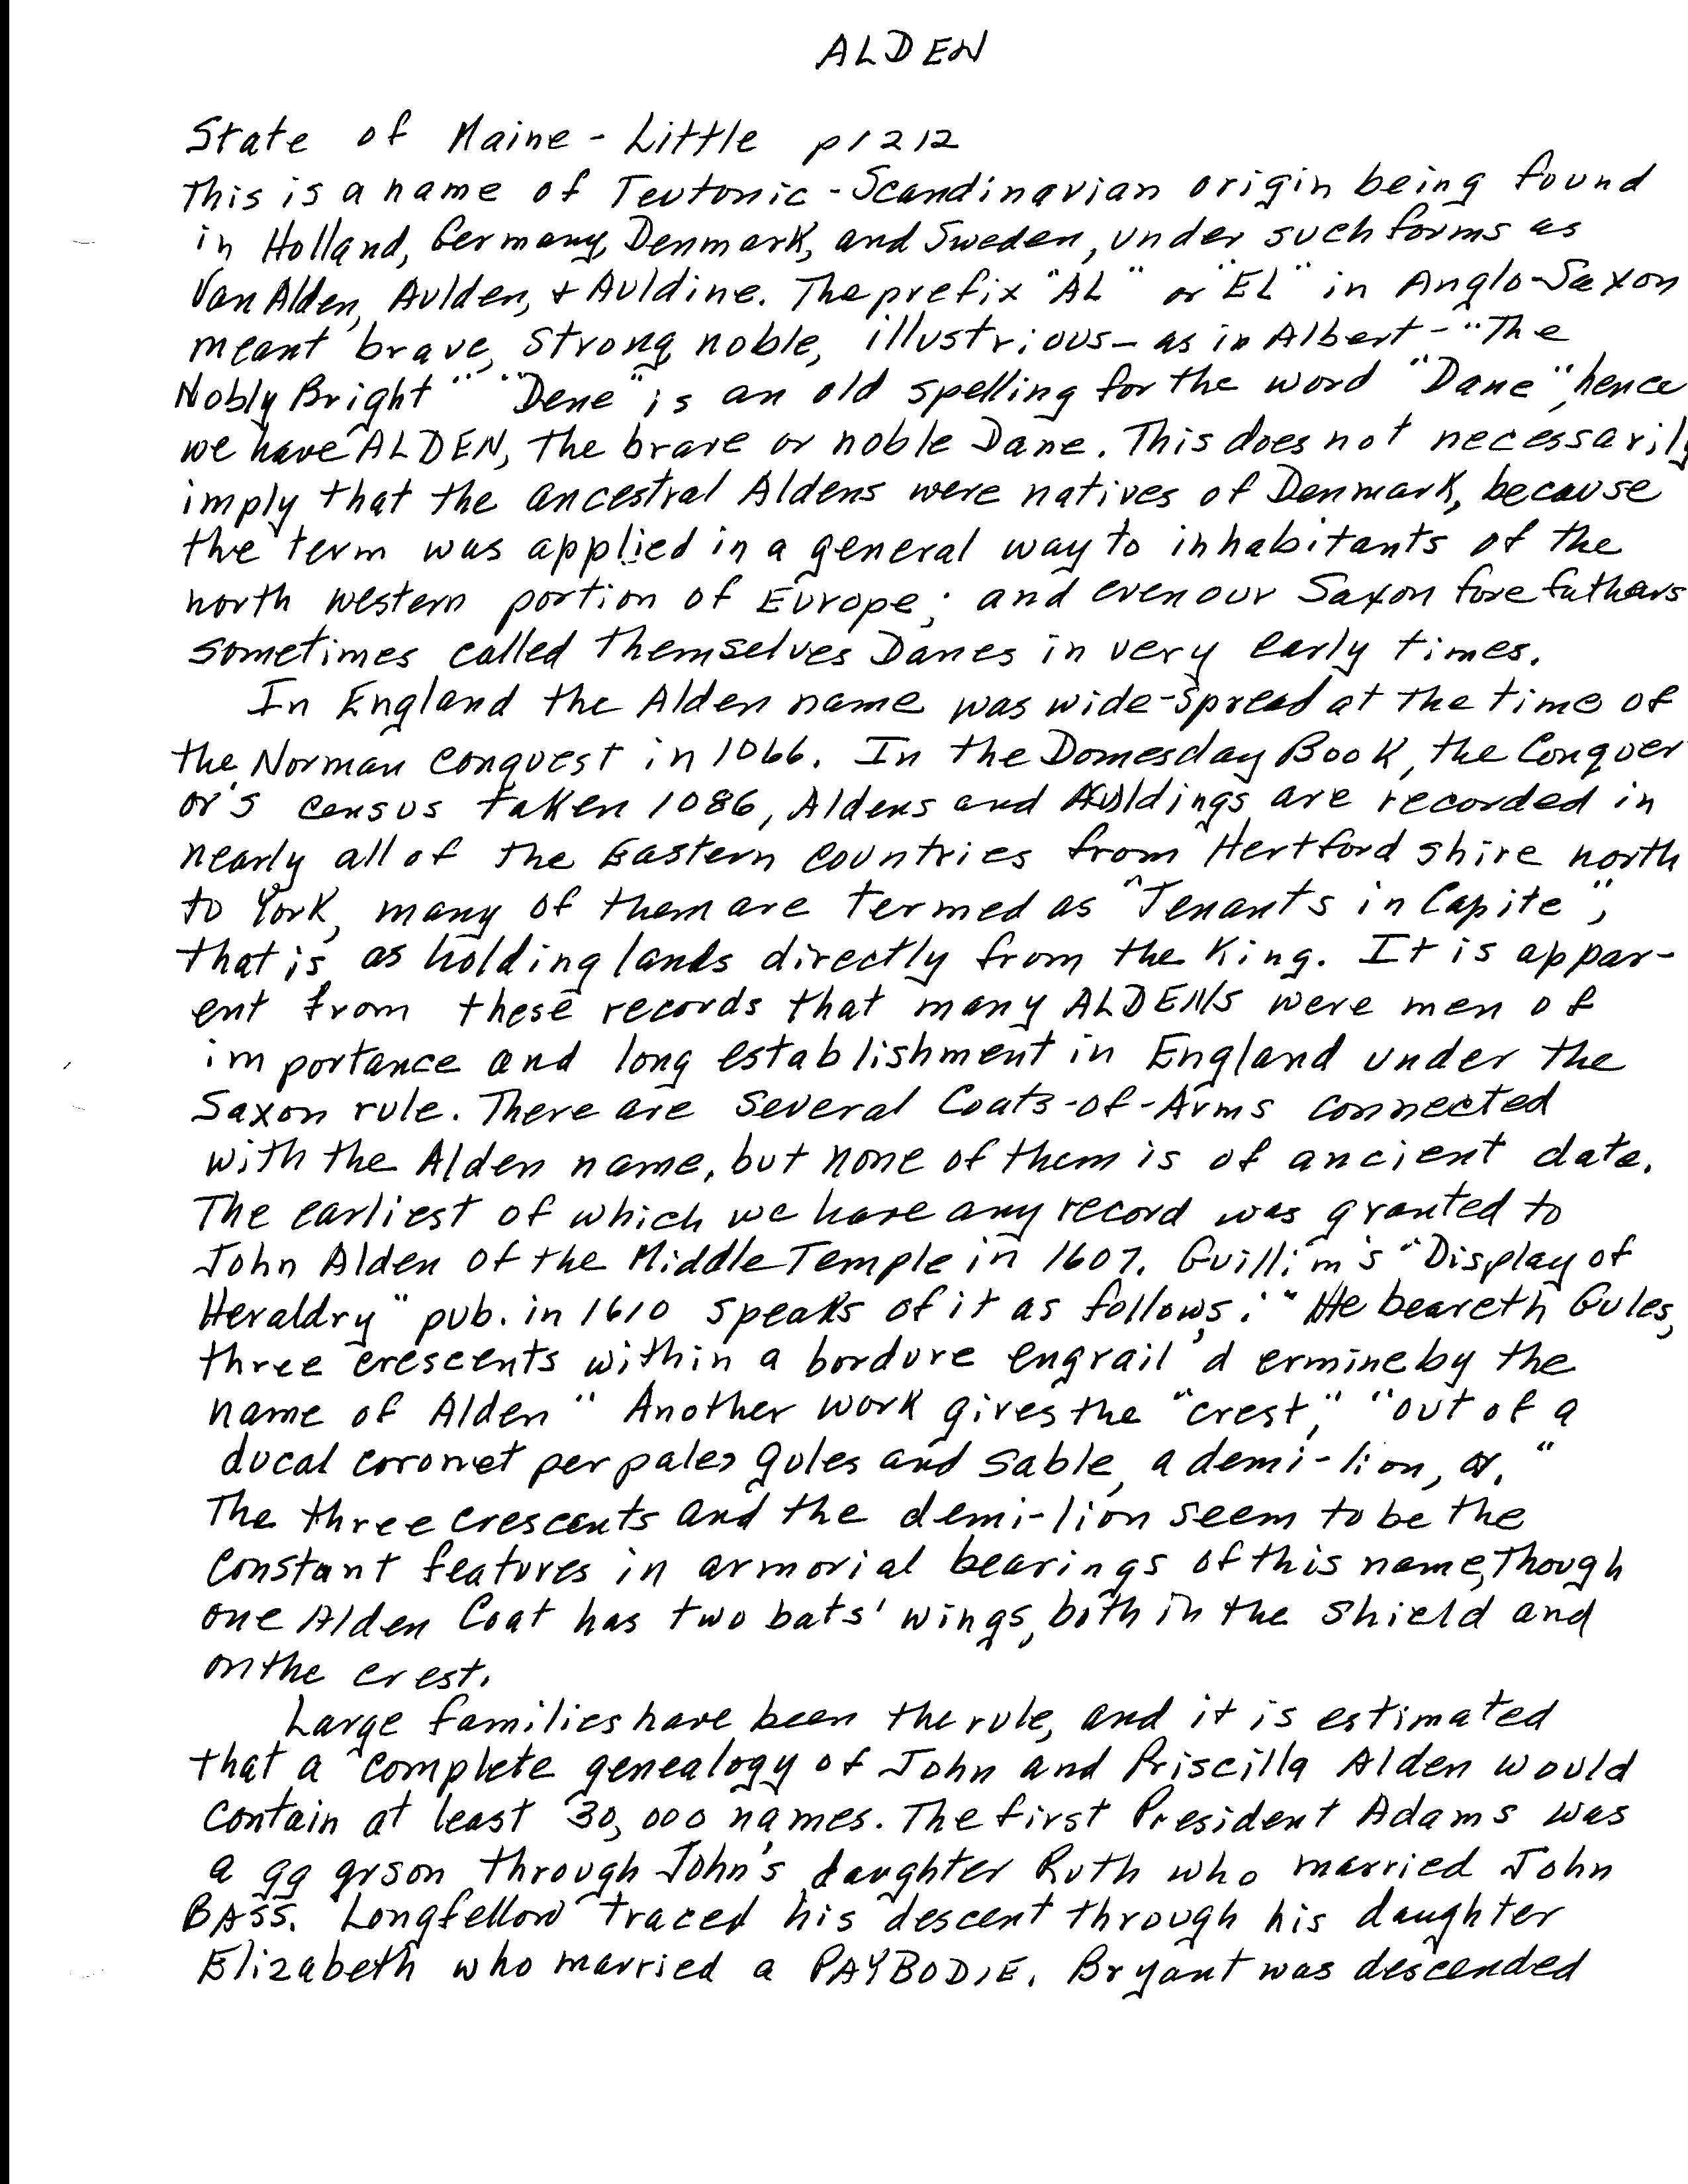 ALDEN
State of Maine - Little p1212
This is a name of Teutonic - Scandinavian origin being found
in Holland, Germany, Denmark, and Sweden, under such forms as
Van Alden, Aulden, + Auldine. The prefix "AL" or "EL" in Anglo-Saxon
meant brave, strong, noble, illustrious - as in Albert - "The
Nobly Bright" "Dene" is an old spelling for the word "Dane", hence
we have ALDEN, the brave or noble Dane. This does not necessarily
imply that the ancestral Aldens were natives of Denmark, because
the term was applied in a general way to inhabitants of the
north western portion of Europe; and even our Saxon forefathers
sometimes called themselves Danes in very early times.
In England the Alden name was wide-spread at the time of
the Norman Conquest in 1066. In the Domesday Book, the Conquer
or's census taken 1086, Aldens and Auldings are recorded in
nearly all of the Eastern Countries from Hertford shire north
to York, many of them are termed as "Tenants in Capite",
that is, as holding lands directly from the King. It is appar-
ent from these records that many ALDENS were men of
importance and long establishment in England under the
Saxon rule. There are several Coats-of-Arms connected
with the Alden name, but none of them is of ancient date.
The earliest of which we have any record was granted to
John Alden of the Middle Temple in 1607. Guillim's "Display of
Heraldry" pub. in 1610 speaks of it as follows: "He beareth Gules,
three crescents within a bordure engrail'd ermine by the
name of Alden" Another work gives the "crest," "out of a
ducal coronet per pale, gules and sable, a demi-lion, or."
The three crescents and the demi-lion seem to be the
constant features in armorial bearings of this name, though
one Alden Coat has two bats' wings, both in the shield and
on the crest.
Large families have been the rule, and it is estimated
that a complete genealogy of John and Priscilla Alden would
contain at least 30,000 names. The first President Adams was
a gg grson through John's daughter Ruth who married John
BASS. Longfellow traced his descent through his daughter
Elizabeth who married a PAYBODIE. Bryant was descended